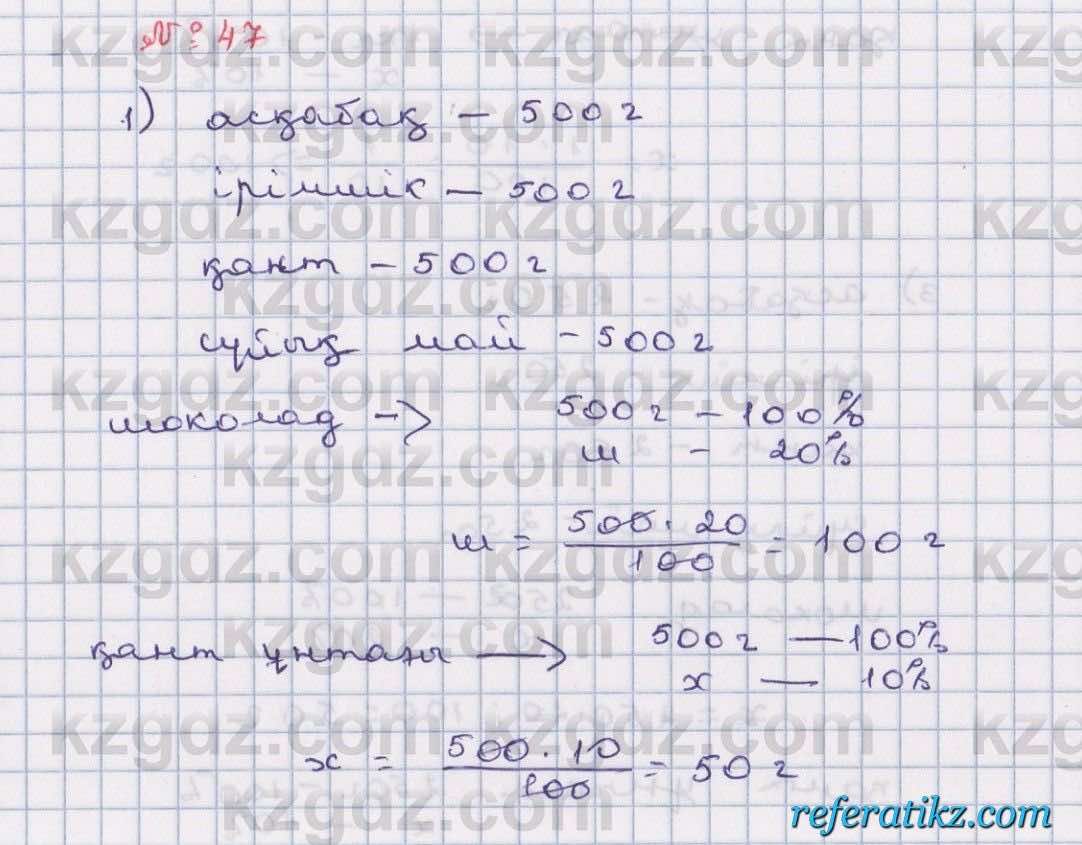 № 47
1) асқабақ – 500 г
ірімшік – 500 г
қант – 500 г
сұйық май – 500 г
шоколад –> 500 г – 100%
ш – 20%
ш = 500 · 20 / 100 = 100 г
қант ұнтағы —> 500 г — 100%
х — 10%
х = 500 · 10 / 100 = 50 г
kzgdz.com
referatikz.com